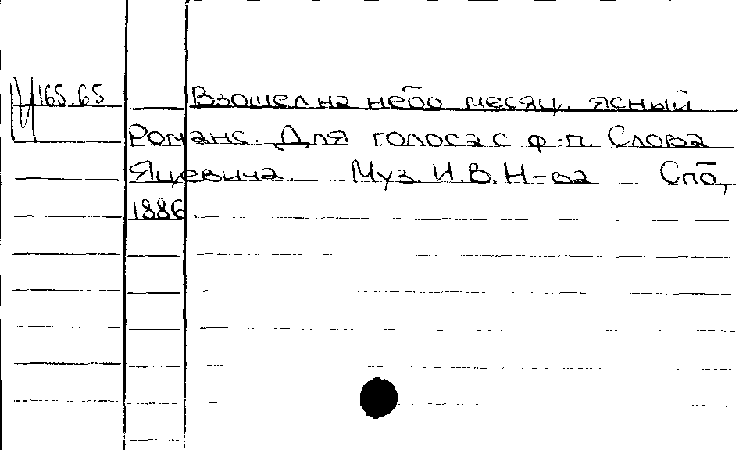 М 165.65 Взошел на небо месяц ясный
Романс. Для голоса с ф-п. Слова
Яцевича. Муз. И.В.Н-ва Спб,
1886